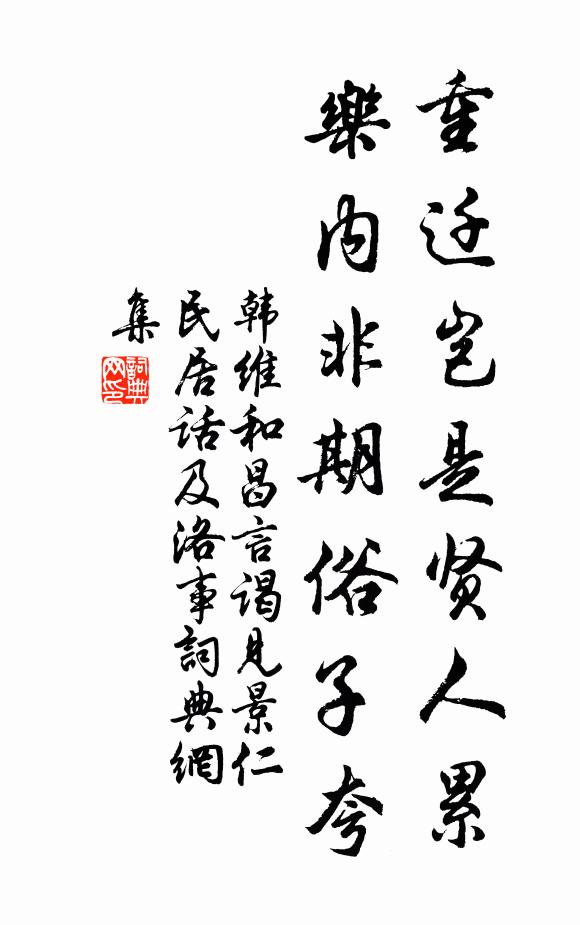 重迁岂是贤人累
樂内非期俗子夸
韩维和昌言谒见景仁
民居话及洛事詞典網
集
詞典网印